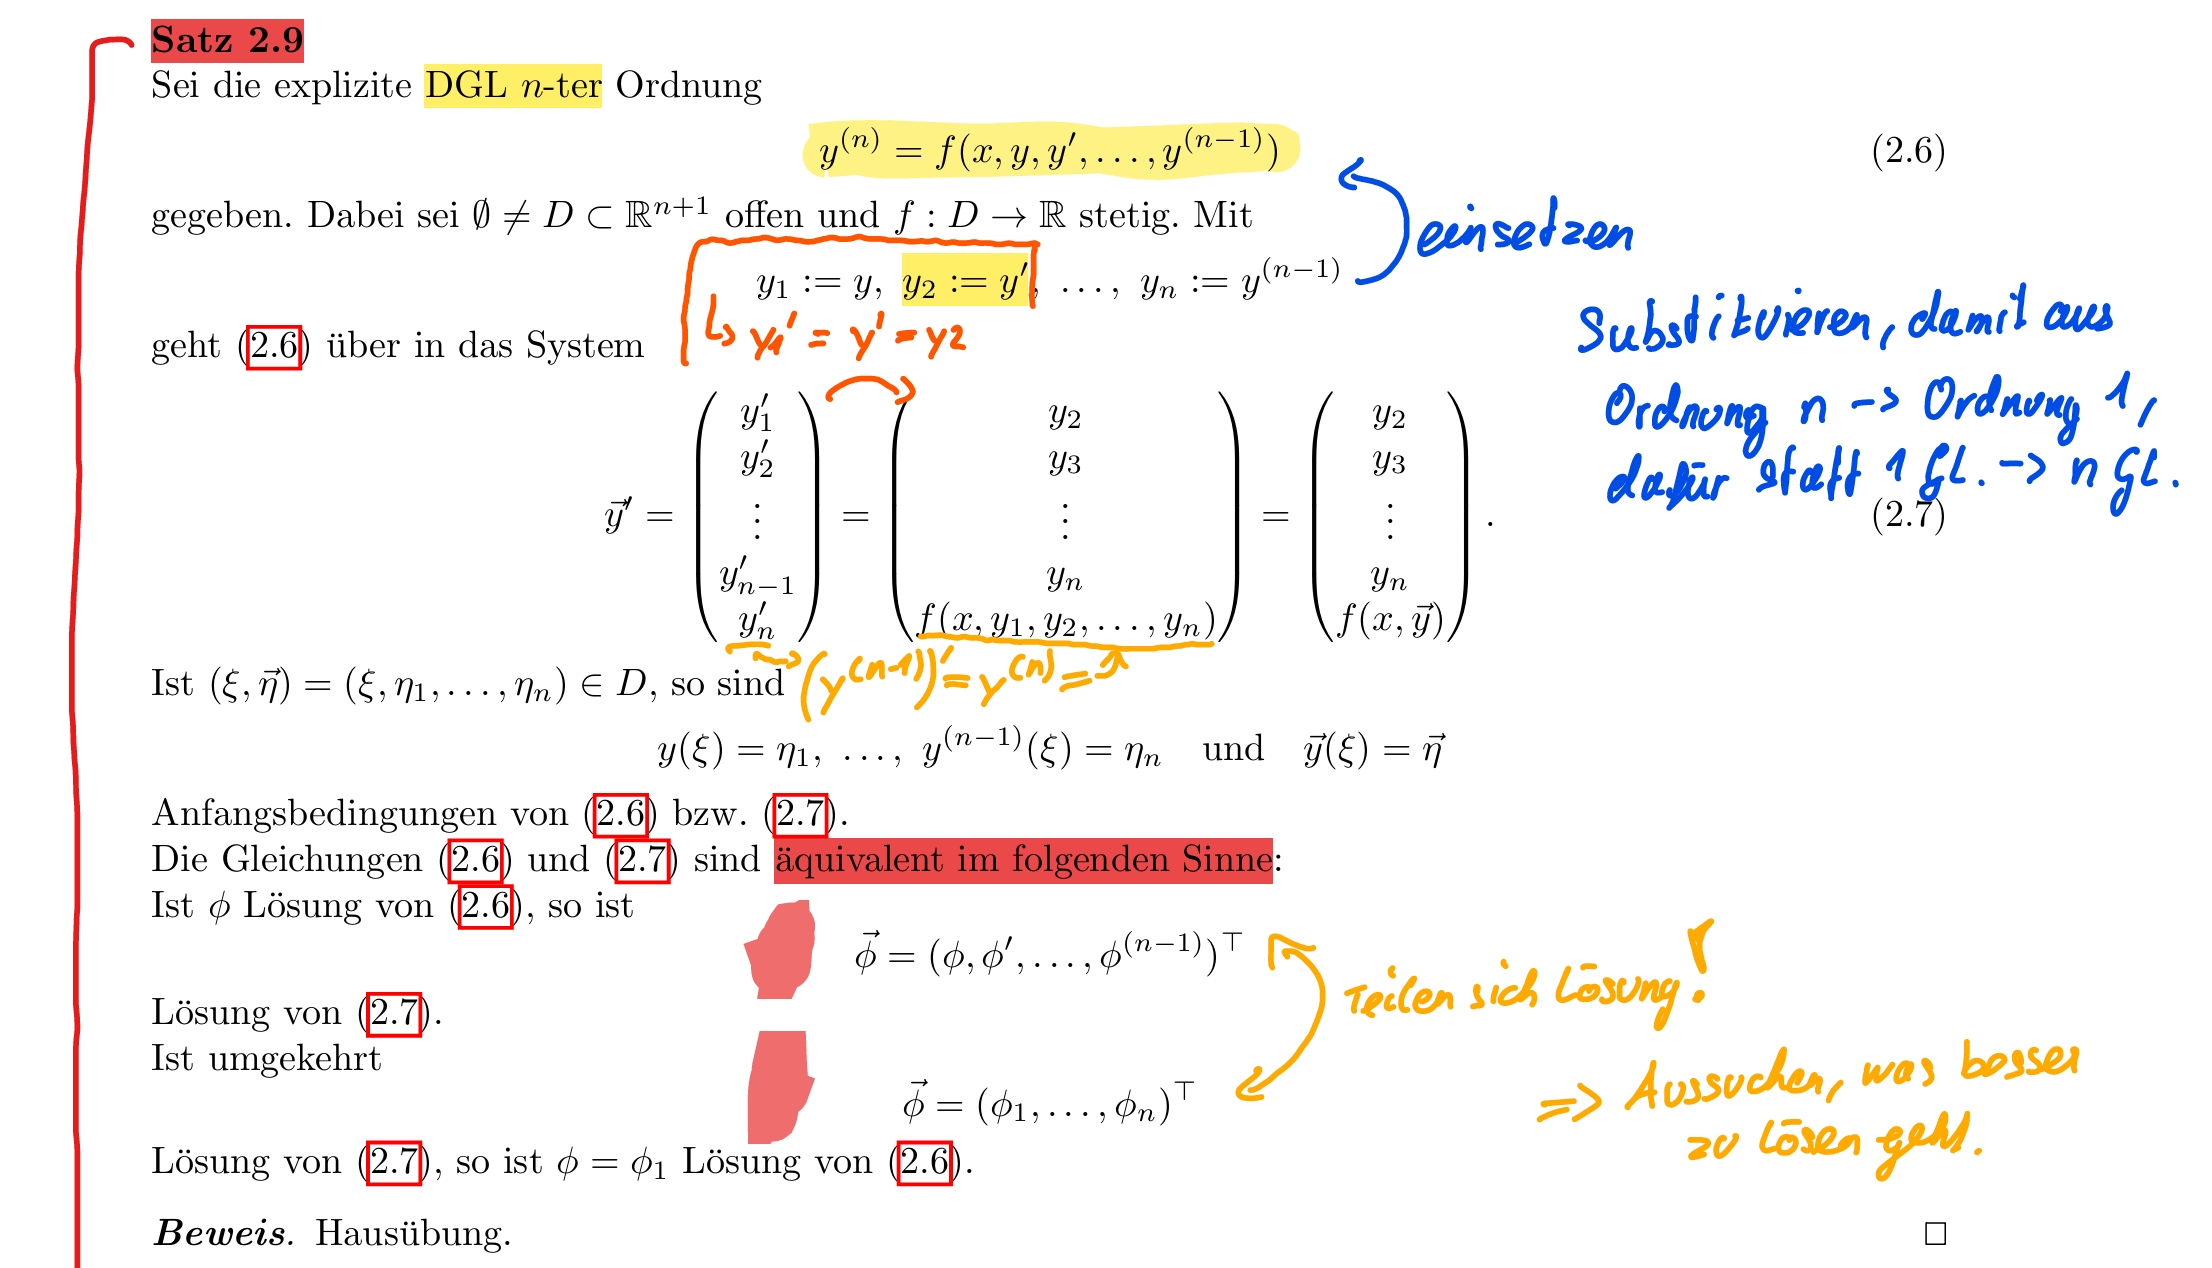 Satz 2.9
Sei die explizite DGL n-ter Ordnung
y^{(n)} = f(x, y, y′, …, y^{(n−1)}) (2.6)
gegeben. Dabei sei ∅ ≠ D ⊂ ℝ^{n+1} offen und f : D → ℝ stetig. Mit
einsetzen
y₁ := y, y₂ := y′, …, yₙ := y^{(n−1)}
geht (2.6) über in das System
↳ y₁′ = y′ = y2
Substituieren, damit aus
Ordnung n -> Ordnung 1,
dafür statt 1 GL. -> n GL.
y⃗′ = (y₁′, y₂′, ⋮, y′_{n−1}, yₙ′) = (y₂, y₃, ⋮, yₙ, f(x, y₁, y₂, …, yₙ)) = (y₂, y₃, ⋮, yₙ, f(x, y⃗)). (2.7)
-> (y^{(n-1)})′ = y^{(n)} =
Ist (ξ, η⃗) = (ξ, η₁, …, ηₙ) ∈ D, so sind
y(ξ) = η₁, …, y^{(n−1)}(ξ) = ηₙ und y⃗(ξ) = η⃗
Anfangsbedingungen von (2.6) bzw. (2.7).
Die Gleichungen (2.6) und (2.7) sind äquivalent im folgenden Sinne:
Ist ϕ Lösung von (2.6), so ist
ϕ⃗ = (ϕ, ϕ′, …, ϕ^{(n−1)})^⊤
Teilen sich Lösung!
Lösung von (2.7).
Ist umgekehrt
ϕ⃗ = (ϕ₁, …, ϕₙ)^⊤
=> Aussuchen, was besser
zu lösen geht.
Lösung von (2.7), so ist ϕ = ϕ₁ Lösung von (2.6).
Beweis. Hausübung. □